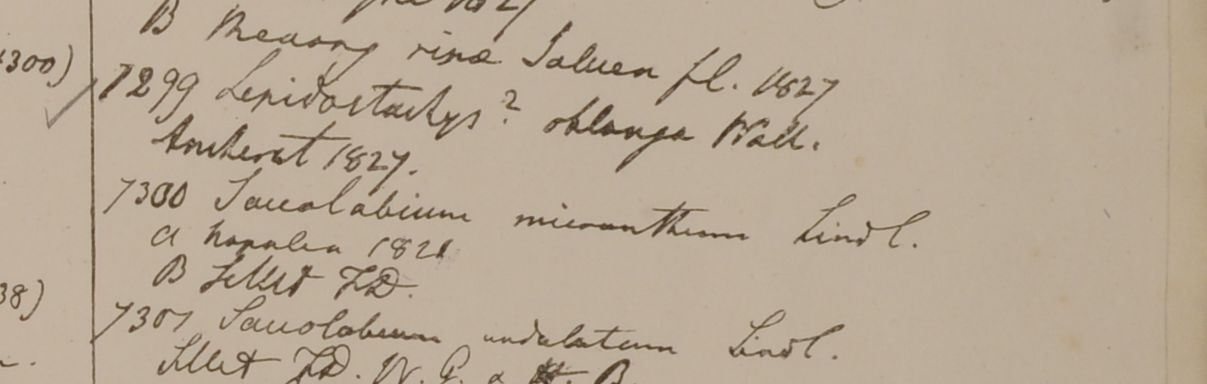 1827
B ripæ Saluen fl. 1827
300)
7299 Lepidostachys? oblonga Wall.
Amherst 1827.
7300 Saccolabium micranthum Lindl.
a Napalia 1821
B Sillet FD.
38)
7301 Saccolabium undulatum Lindl.
Sillet FD. W. G. & H. B.